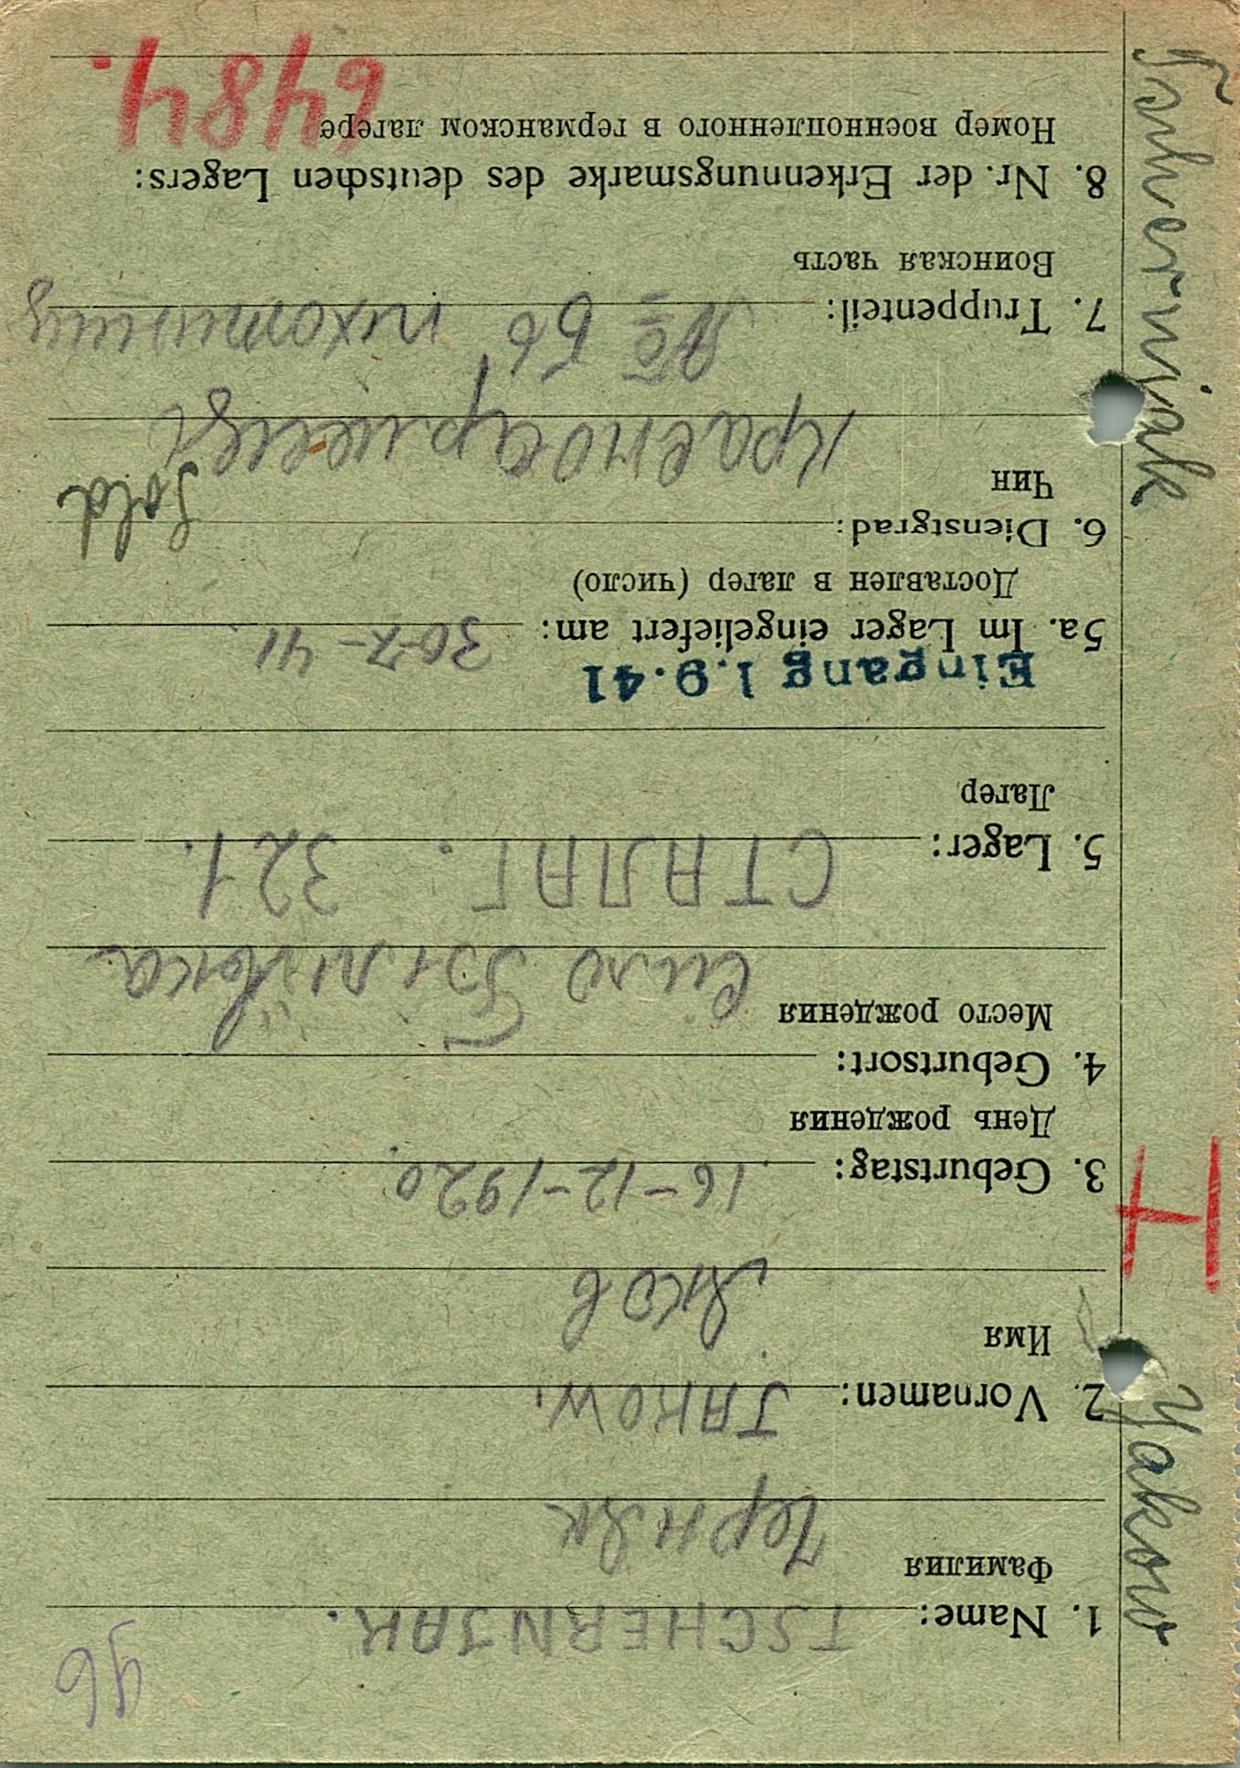 96
1. Name: TSCHERNJAK.
Фамилия
Черняк
2. Vornamen: JAKOW.
Имя
Яков
3. Geburtstag: 16-12-1920.
День рождения
4. Geburtsort:
Место рождения
село
5. Lager: СТАЛАГ. 321.
Лагер
Eingang 1.9.41
5a. Im Lager eingeliefert am: 30-7-41
Доставлен в лагер (число)
6. Dienstgrad: Sold
Чин
Красноармеец
7. Truppenteil: № 56
Воинская часть
8. Nr. der Erkennungsmarke des deutschen Lagers:
Номер военнопленного в германском лагере
6484.
Yakow
H
Tschernjak